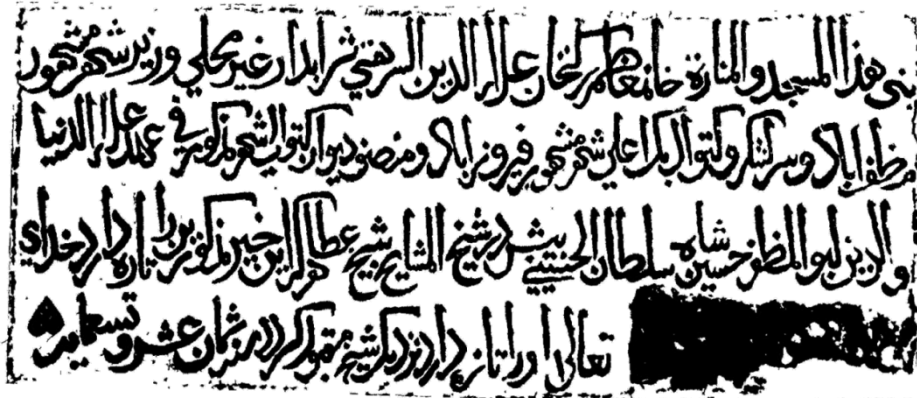 بنی هذا المسجد والمنارة خانمعظم الخان علاء الدین السرهتی شرابدار غیر محلی وزیر شهر مشهور
مظفراباد و سر لشکر و کتوال بکراعلی شهر مشهور فیروزاباد و منصف دیوان کتوالی شهر مذکور فی عهد علاء الدنیا
والدین ابو المظفر حسین شاه سلطان الحسینی پیش در شیخ المشایخ شیخ عطا هرکه این خیر مذکور را تازه دارد خدای
تعالی او را تازه دارد نزدیک شیخ مقبول کردد در ثمان عشر و تسعمایه